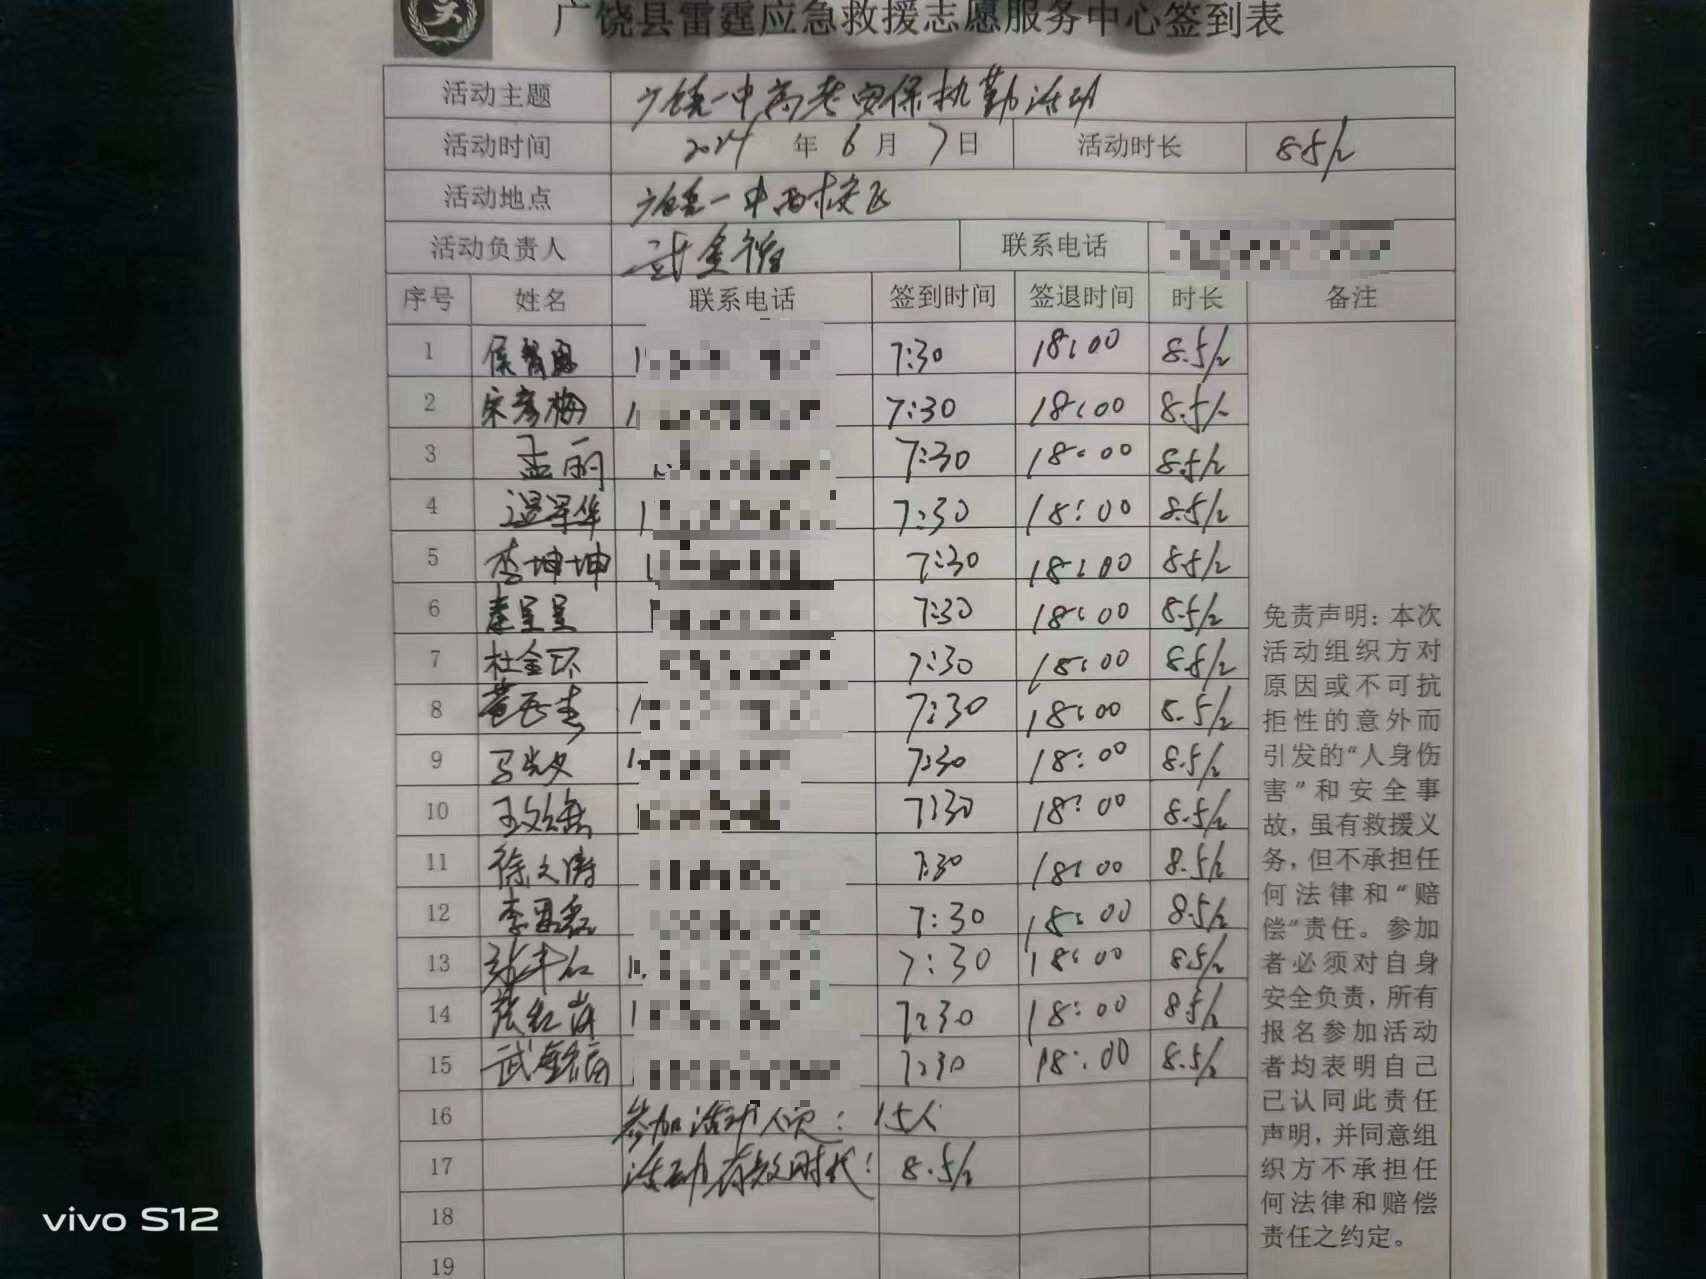 广饶县雷霆应急救援志愿服务中心签到表
活动主题 广饶一中高考安保执勤活动
活动时间 2024 年 6 月 7 日 活动时长 8.5/h
活动地点 广饶一中西校区
活动负责人 武金福 联系电话
序号 姓名 联系电话 签到时间 签退时间 时长 备注
1 7:30 18:00 8.5/h
2 宋彦梅 7:30 18:00 8.5/h
3 孟丽 7:30 18:00 8.5/h
4 7:30 18:00 8.5/h
5 李坤坤 7:30 18:00 8.5/h
6 7:30 18:00 8.5/h
7 杜金环 7:30 18:00 8.5/h
8 7:30 18:00 8.5/h
9 7:30 18:00 8.5/h
10 7:30 18:00 8.5/h
11 徐文涛 7:30 18:00 8.5/h
12 7:30 18:00 8.5/h
13 7:30 18:00 8.5/h
14 7:30 18:00 8.5/h
15 武金福 7:30 18:00 8.5/h
16 参加活动人次: 15人
17 活动有效时长: 8.5/h
18
19
免责声明:本次
活动组织方对
原因或不可抗
拒性的意外而
引发的“人身伤
害”和安全事
故,虽有救援义
务,但不承担任
何法律和“赔
偿”责任。参加
者必须对自身
安全负责,所有
报名参加活动
者均表明自己
已认同此责任
声明,并同意组
织方不承担任
何法律和赔偿
责任之约定。
vivo S12